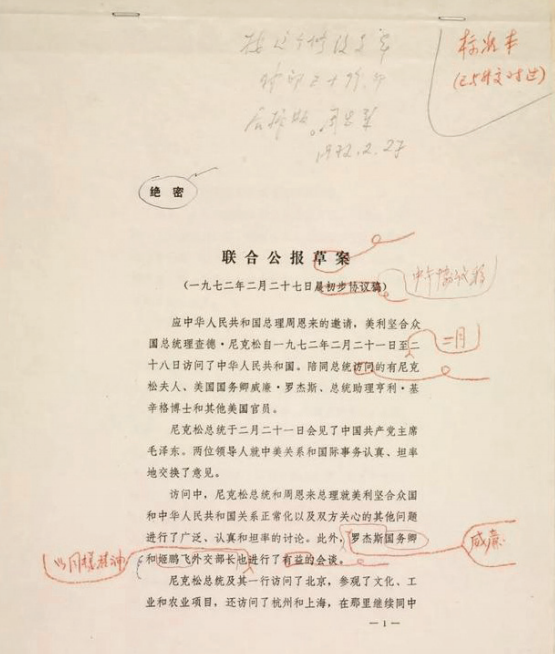 标准本
(已与外文对过)
1972.2.27
绝密
联合公报草案
(一九七二年二月二十七日晨初步协议稿)
应中华人民共和国总理周恩来的邀请，美利坚合众
国总统理查德·尼克松自一九七二年二月二十一日至二
二月
十八日访问了中华人民共和国。陪同总统访问的有尼克
松夫人、美国国务卿威廉·罗杰斯、总统助理亨利·基
辛格博士和其他美国官员。
尼克松总统于二月二十一日会见了中国共产党主席
毛泽东。两位领导人就中美关系和国际事务认真、坦率
地交换了意见。
访问中，尼克松总统和周恩来总理就美利坚合众国
和中华人民共和国关系正常化以及双方关心的其他问题
进行了广泛、认真和坦率的讨论。此外，罗杰斯国务卿
威廉·
以同样精神
和姬鹏飞外交部长也进行了有益的会谈。
尼克松总统及其一行访问了北京，参观了文化、工
业和农业项目，还访问了杭州和上海，在那里继续同中
— 1 —